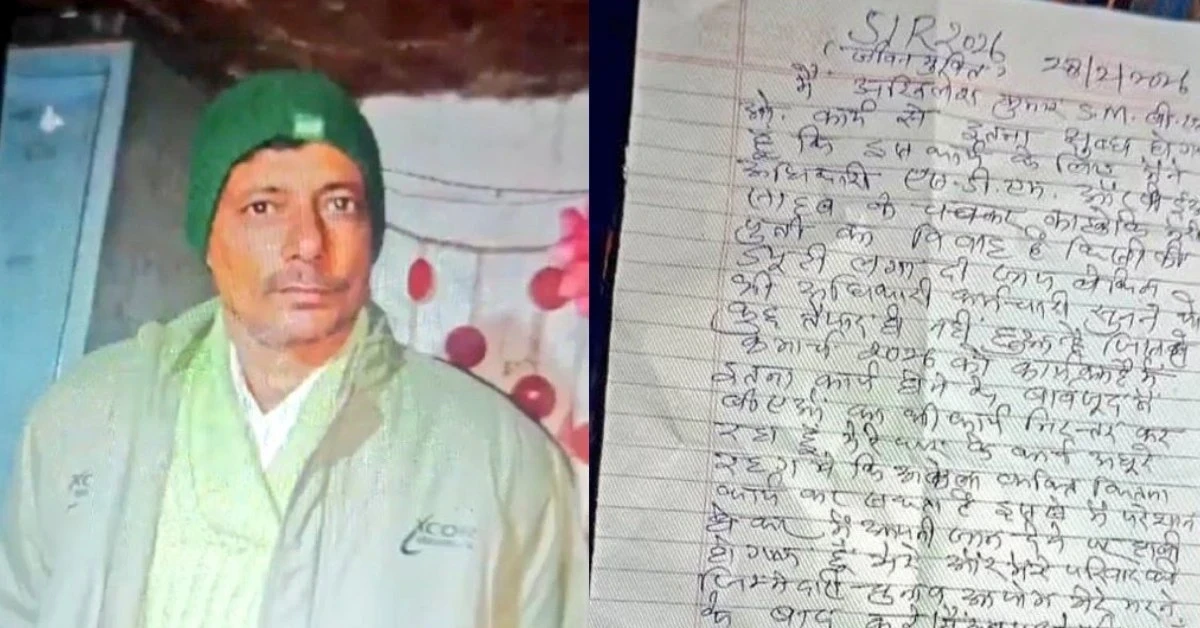 XCORE
SIR 2026
(जीवन मुक्ति) 28/2/2026
मैं अखिलेश कुमार S.M. बी.एल
ओ. कार्य से इतना क्षुब्ध हो गया
हूँ कि इस कार्य के लिए मैंने
अधिकारी एस.डी.एम. और बी.ई.
साहब के चक्कर काटे कि मेरी
पुत्री का विवाह है किसी की
ड्यूटी लगा दी जाए लेकिन
भी अधिकारी कर्मचारी सुनने को
कुछ तैयार ही नहीं हुआ है
8 मार्च 2026 को कार्यक्रम है
इतना कार्य होने के बावजूद मैं
बीएलओ का भी कार्य निरन्तर कर
रहा हूँ मेरे घर के कार्य अधूरे
रह गये कि अकेला व्यक्ति कितना
कार्य कर सकता है इससे मैं परेशान
हो कर मैं अपनी जान देने पर हावी
हो गया हूँ मेरे और मेरे परिवार की
जिम्मेदारी चुनाव आयोग मेरे मरने
के बाद करे